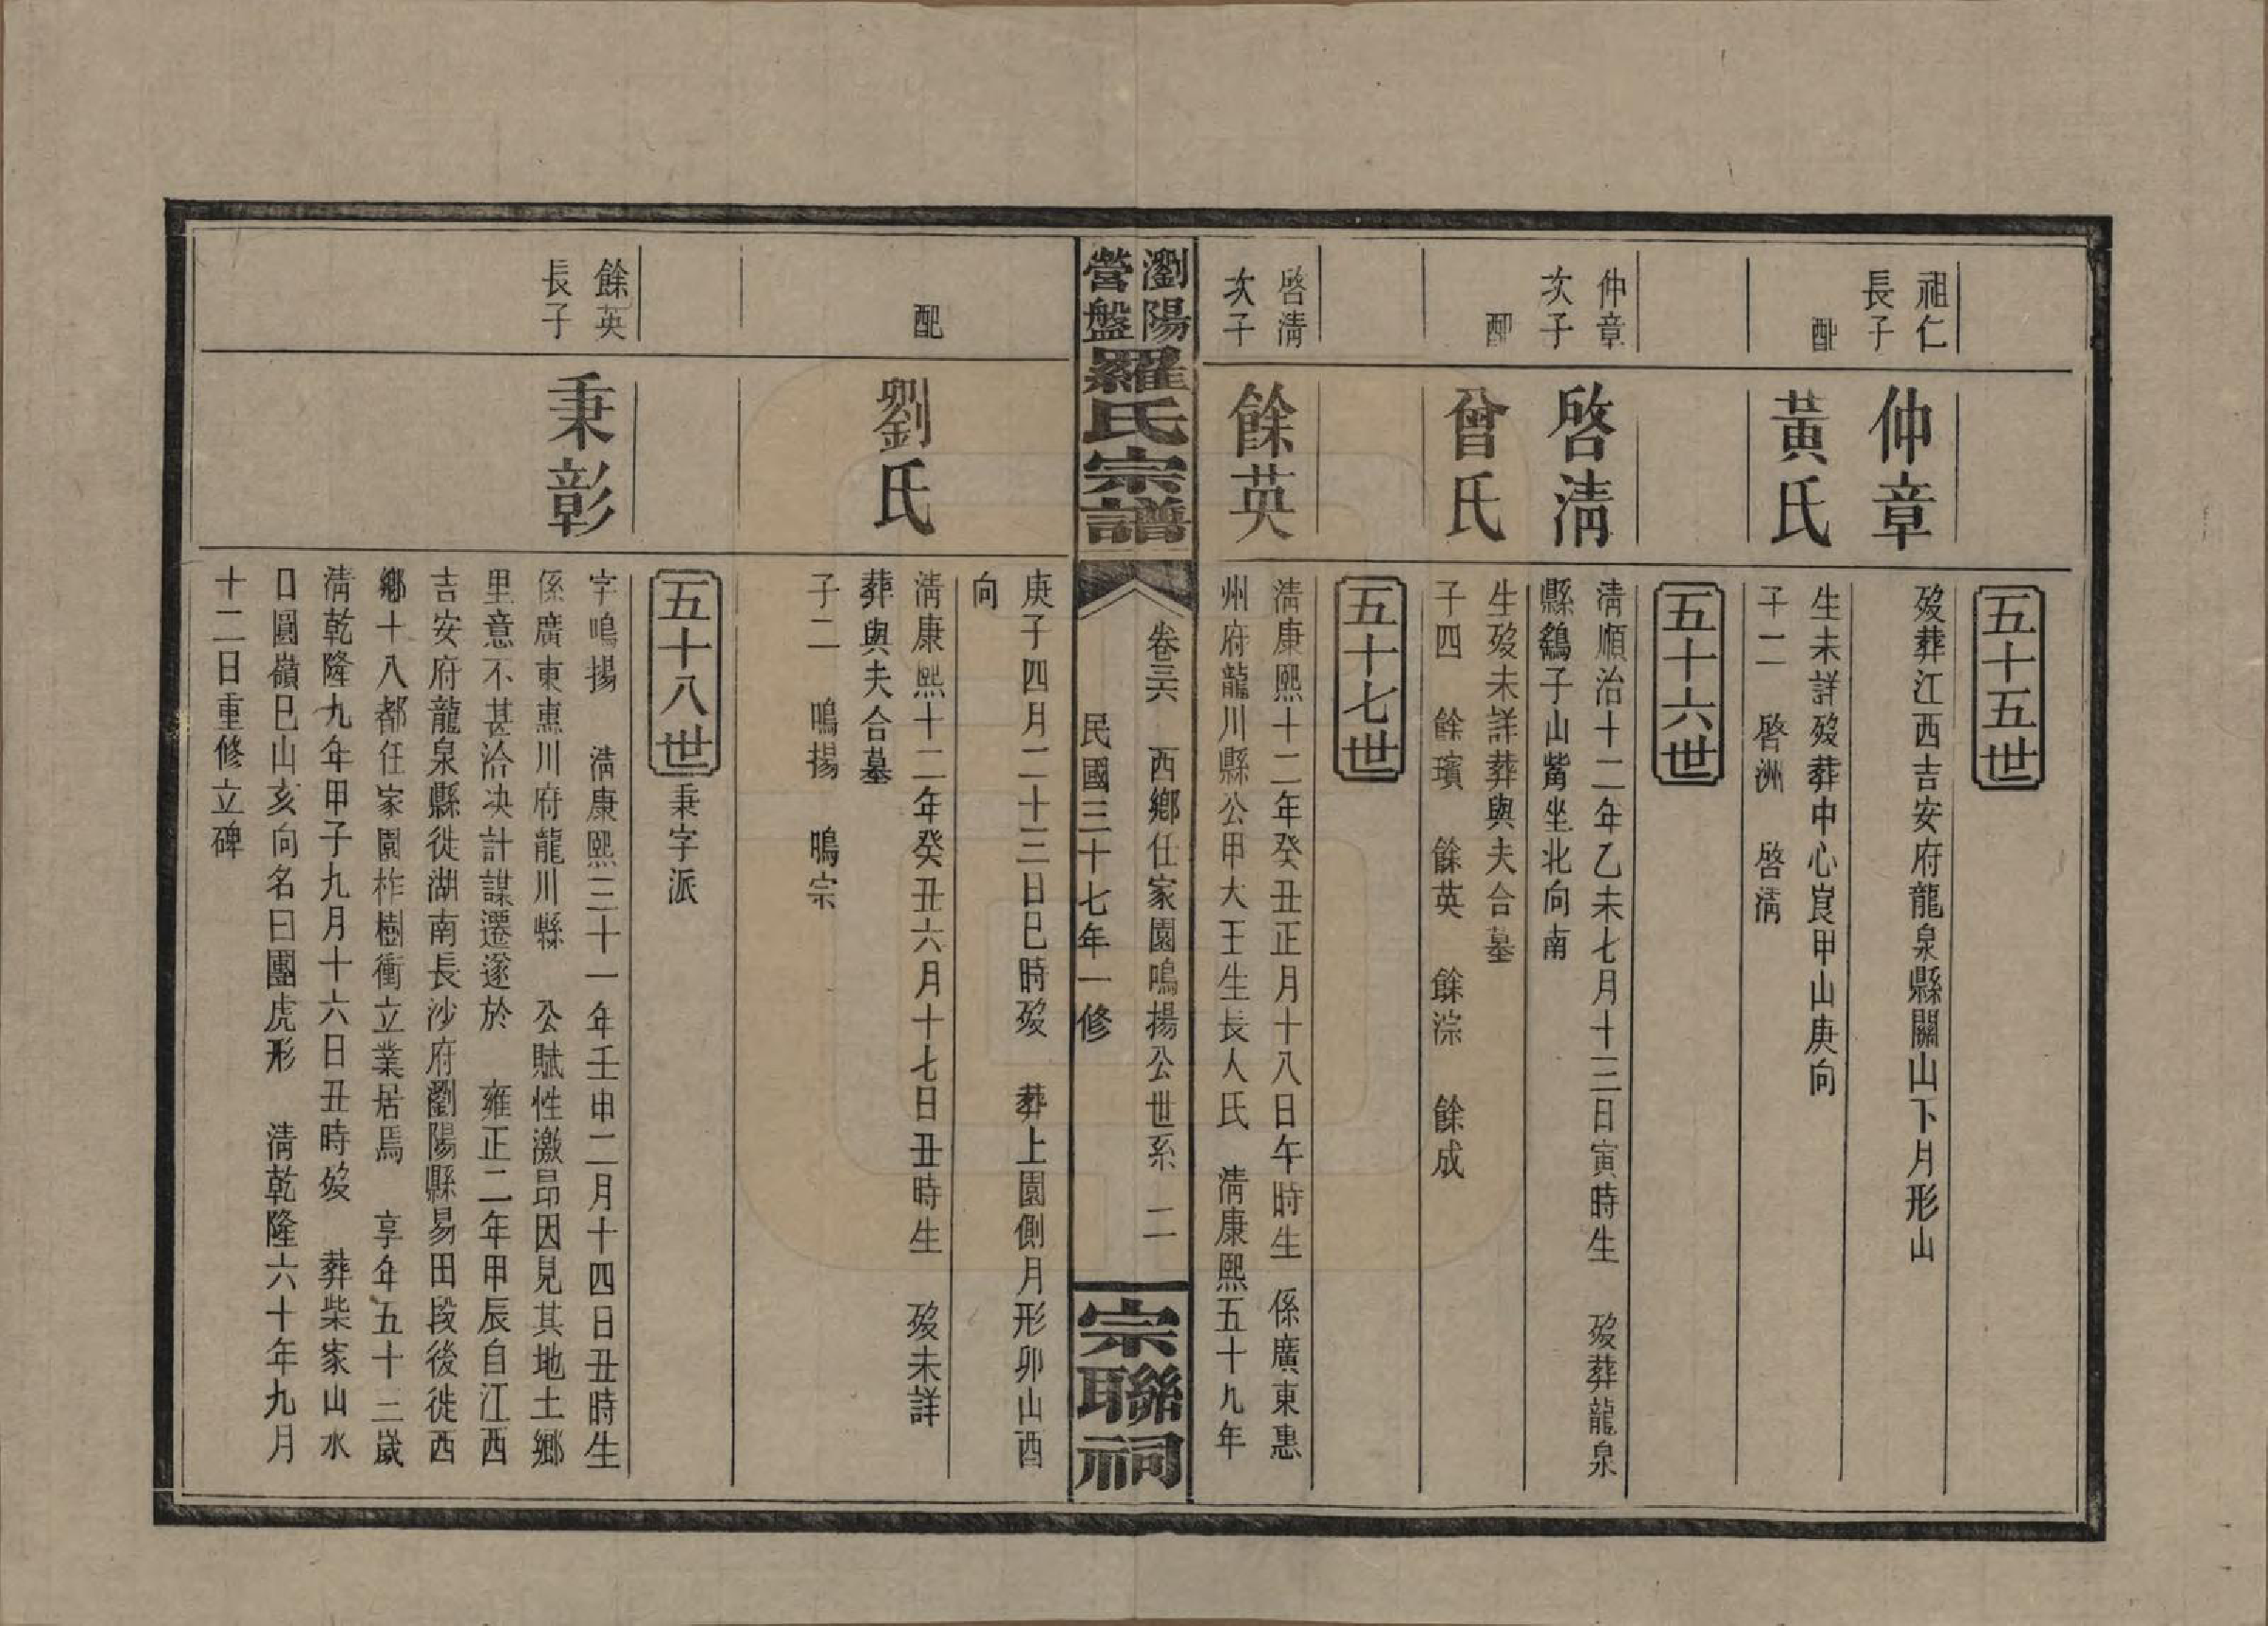 五十五世
祖仁
長子
仲章
歿葬江西吉安府龍泉縣關山下月形山
配
黃氏
生未詳歿葬中心崀甲山庚向
子二　啓洲　啓清
五十六世
仲章
次子
啓清
清順治十二年乙未七月十三日寅時生　歿葬龍泉
縣鷂子山觜坐北向南
配
曾氏
生歿未詳葬與夫合墓
子四　餘璸　餘英　餘淙　餘成
五十七世
啓清
次子
餘英
清康熙十二年癸丑正月十八日午時生　係廣東惠
州府龍川縣公甲大王生長人氏　清康熙五十九年
瀏陽
營盤
羅氏宗譜
卷三六　西鄉任家園鳴揚公世系　二
民國三十七年一修
宗聯祠
庚子四月二十三日巳時歿　葬上園側月形卯山酉
向
配
劉氏
清康熙十二年癸丑六月十七日丑時生　歿未詳
葬與夫合墓
子二　鳴揚　鳴宗
五十八世秉字派
餘英
長子
秉彰
字鳴揚　清康熙三十一年壬申二月十四日丑時生
係廣東惠川府龍川縣　公賦性激昂因見其地土鄉
里意不甚洽決計謀遷遂於　雍正二年甲辰自江西
吉安府龍泉縣徙湖南長沙府瀏陽縣易田段後徙西
鄉十八都任家園柞樹衝立業居焉　享年五十三歲
清乾隆九年甲子九月十六日丑時歿　葬柴家山水
口圓嶺巳山亥向名曰團虎形　清乾隆六十年九月
十二日重修立碑